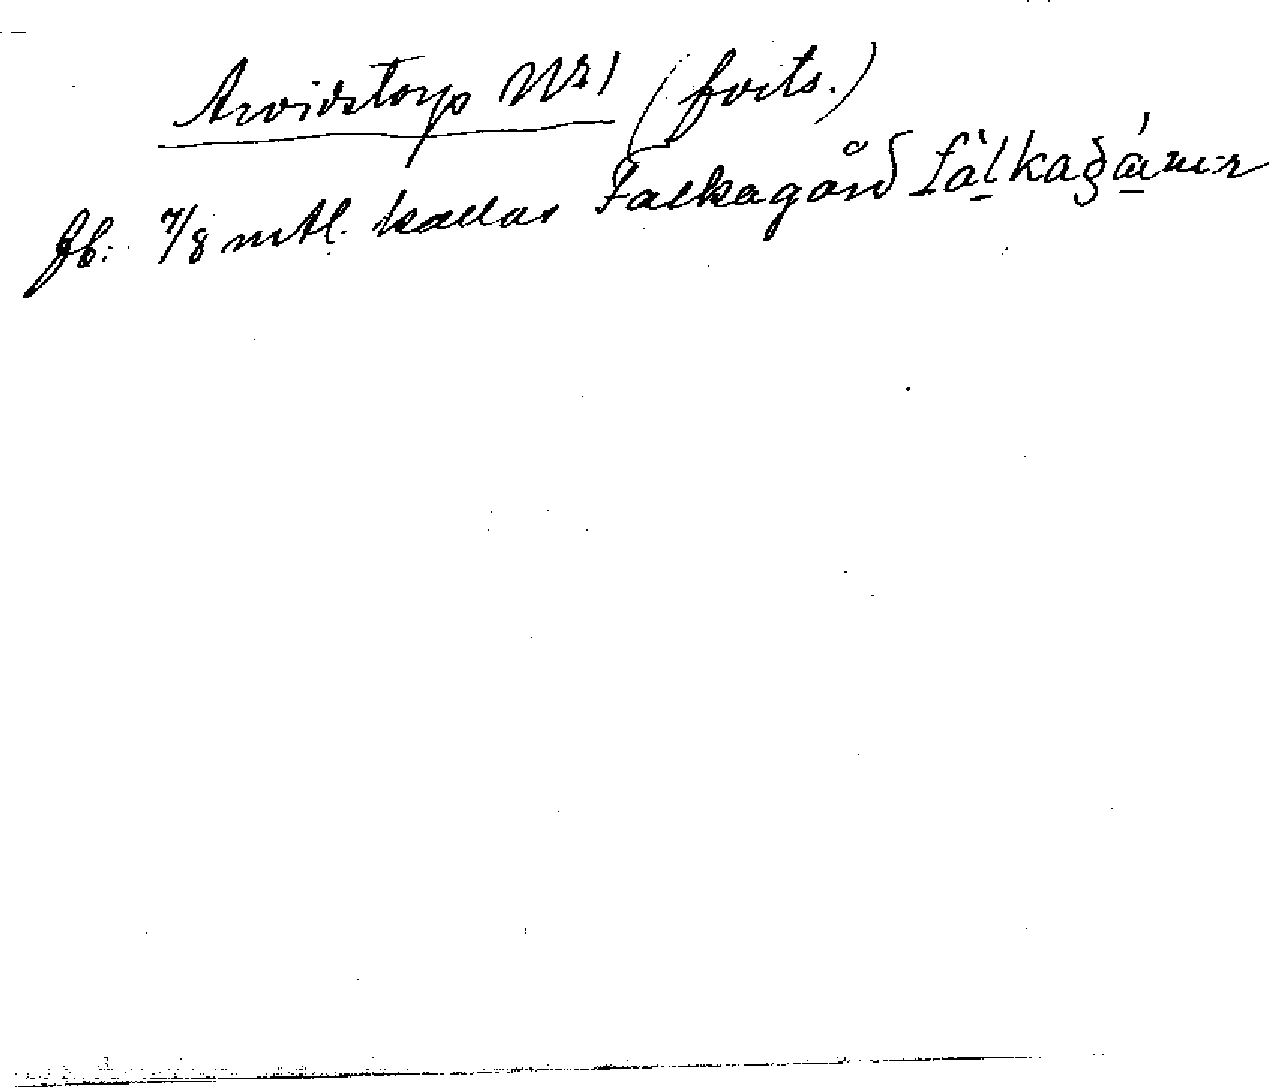 Arvidstorp Nr 1 (forts.)
Jb: 7/8 mtl. kallas Falkagård